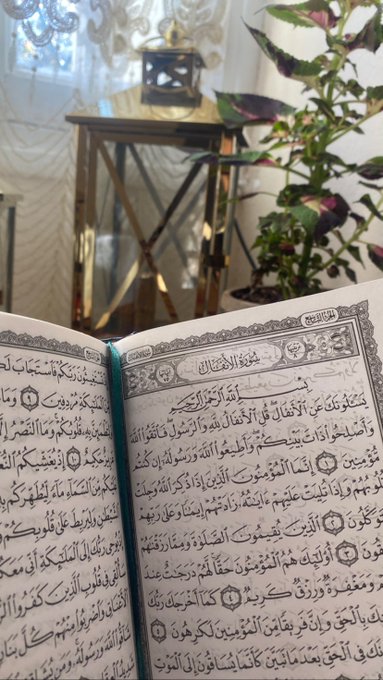 الجزء التاسع
سورة الأنفال
بِسْمِ اللَّهِ الرَّحْمَٰنِ الرَّحِيمِ
يَسْـَٔلُونَكَ عَنِ الْأَنفَالِ قُلِ الْأَنفَالُ لِلَّهِ وَالرَّسُولِ فَاتَّقُوا اللَّهَ
وَأَصْلِحُوا ذَاتَ بَيْنِكُمْ وَأَطِيعُوا اللَّهَ وَرَسُولَهُ إِن كُنتُم
مُّؤْمِنِينَ ١ إِنَّمَا الْمُؤْمِنُونَ الَّذِينَ إِذَا ذُكِرَ اللَّهُ وَجِلَتْ
لُوبُهُمْ وَإِذَا تُلِيَتْ عَلَيْهِمْ ءَايَٰتُهُ زَادَتْهُمْ إِيمَٰنًا وَعَلَىٰ رَبِّهِمْ
وَكَّلُونَ ٢ الَّذِينَ يُقِيمُونَ الصَّلَوٰةَ وَمِمَّا رَزَقْنَٰهُمْ
ونَ ٣ أُولَٰئِكَ هُمُ الْمُؤْمِنُونَ حَقًّا لَّهُمْ دَرَجَٰتٌ عِندَ
وَمَغْفِرَةٌ وَرِزْقٌ كَرِيمٌ ٤ كَمَا أَخْرَجَكَ رَبُّكَ
كَ بِالْحَقِّ وَإِنَّ فَرِيقًا مِّنَ الْمُؤْمِنِينَ لَكَٰرِهُونَ ٥
كَ فِي الْحَقِّ بَعْدَ مَا تَبَيَّنَ كَأَنَّمَا يُسَاقُونَ إِلَى الْمَوْتِ
تَسْتَغِيثُونَ رَبَّكُمْ فَاسْتَجَابَ
مِّنَ الْمَلَٰئِكَةِ مُرْدِفِينَ ٩ وَمَا
قُلُوبُكُمْ وَمَا النَّصْرُ إِلَّا
حَكِيمٌ ١٠ إِذْ يُغَشِّيكُمُ
كُم مِّنَ السَّمَاءِ مَاءً لِّيُطَهِّرَكُم
الشَّيْطَٰنِ وَلِيَرْبِطَ عَلَىٰ قُلُوبِكُمْ
يُوحِي رَبُّكَ إِلَى الْمَلَٰئِكَةِ أَنِّي مَعَكُمْ
سَأُلْقِي فِي قُلُوبِ الَّذِينَ كَفَرُوا
الْأَعْنَاقِ وَاضْرِبُوا مِنْهُمْ كُلَّ بَنَانٍ
شَاقُّوا اللَّهَ وَرَسُولَهُ وَمَن